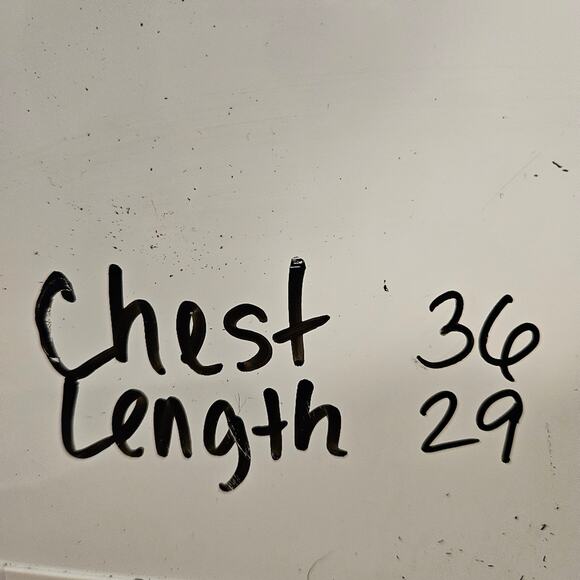 Chest 36
Length 29